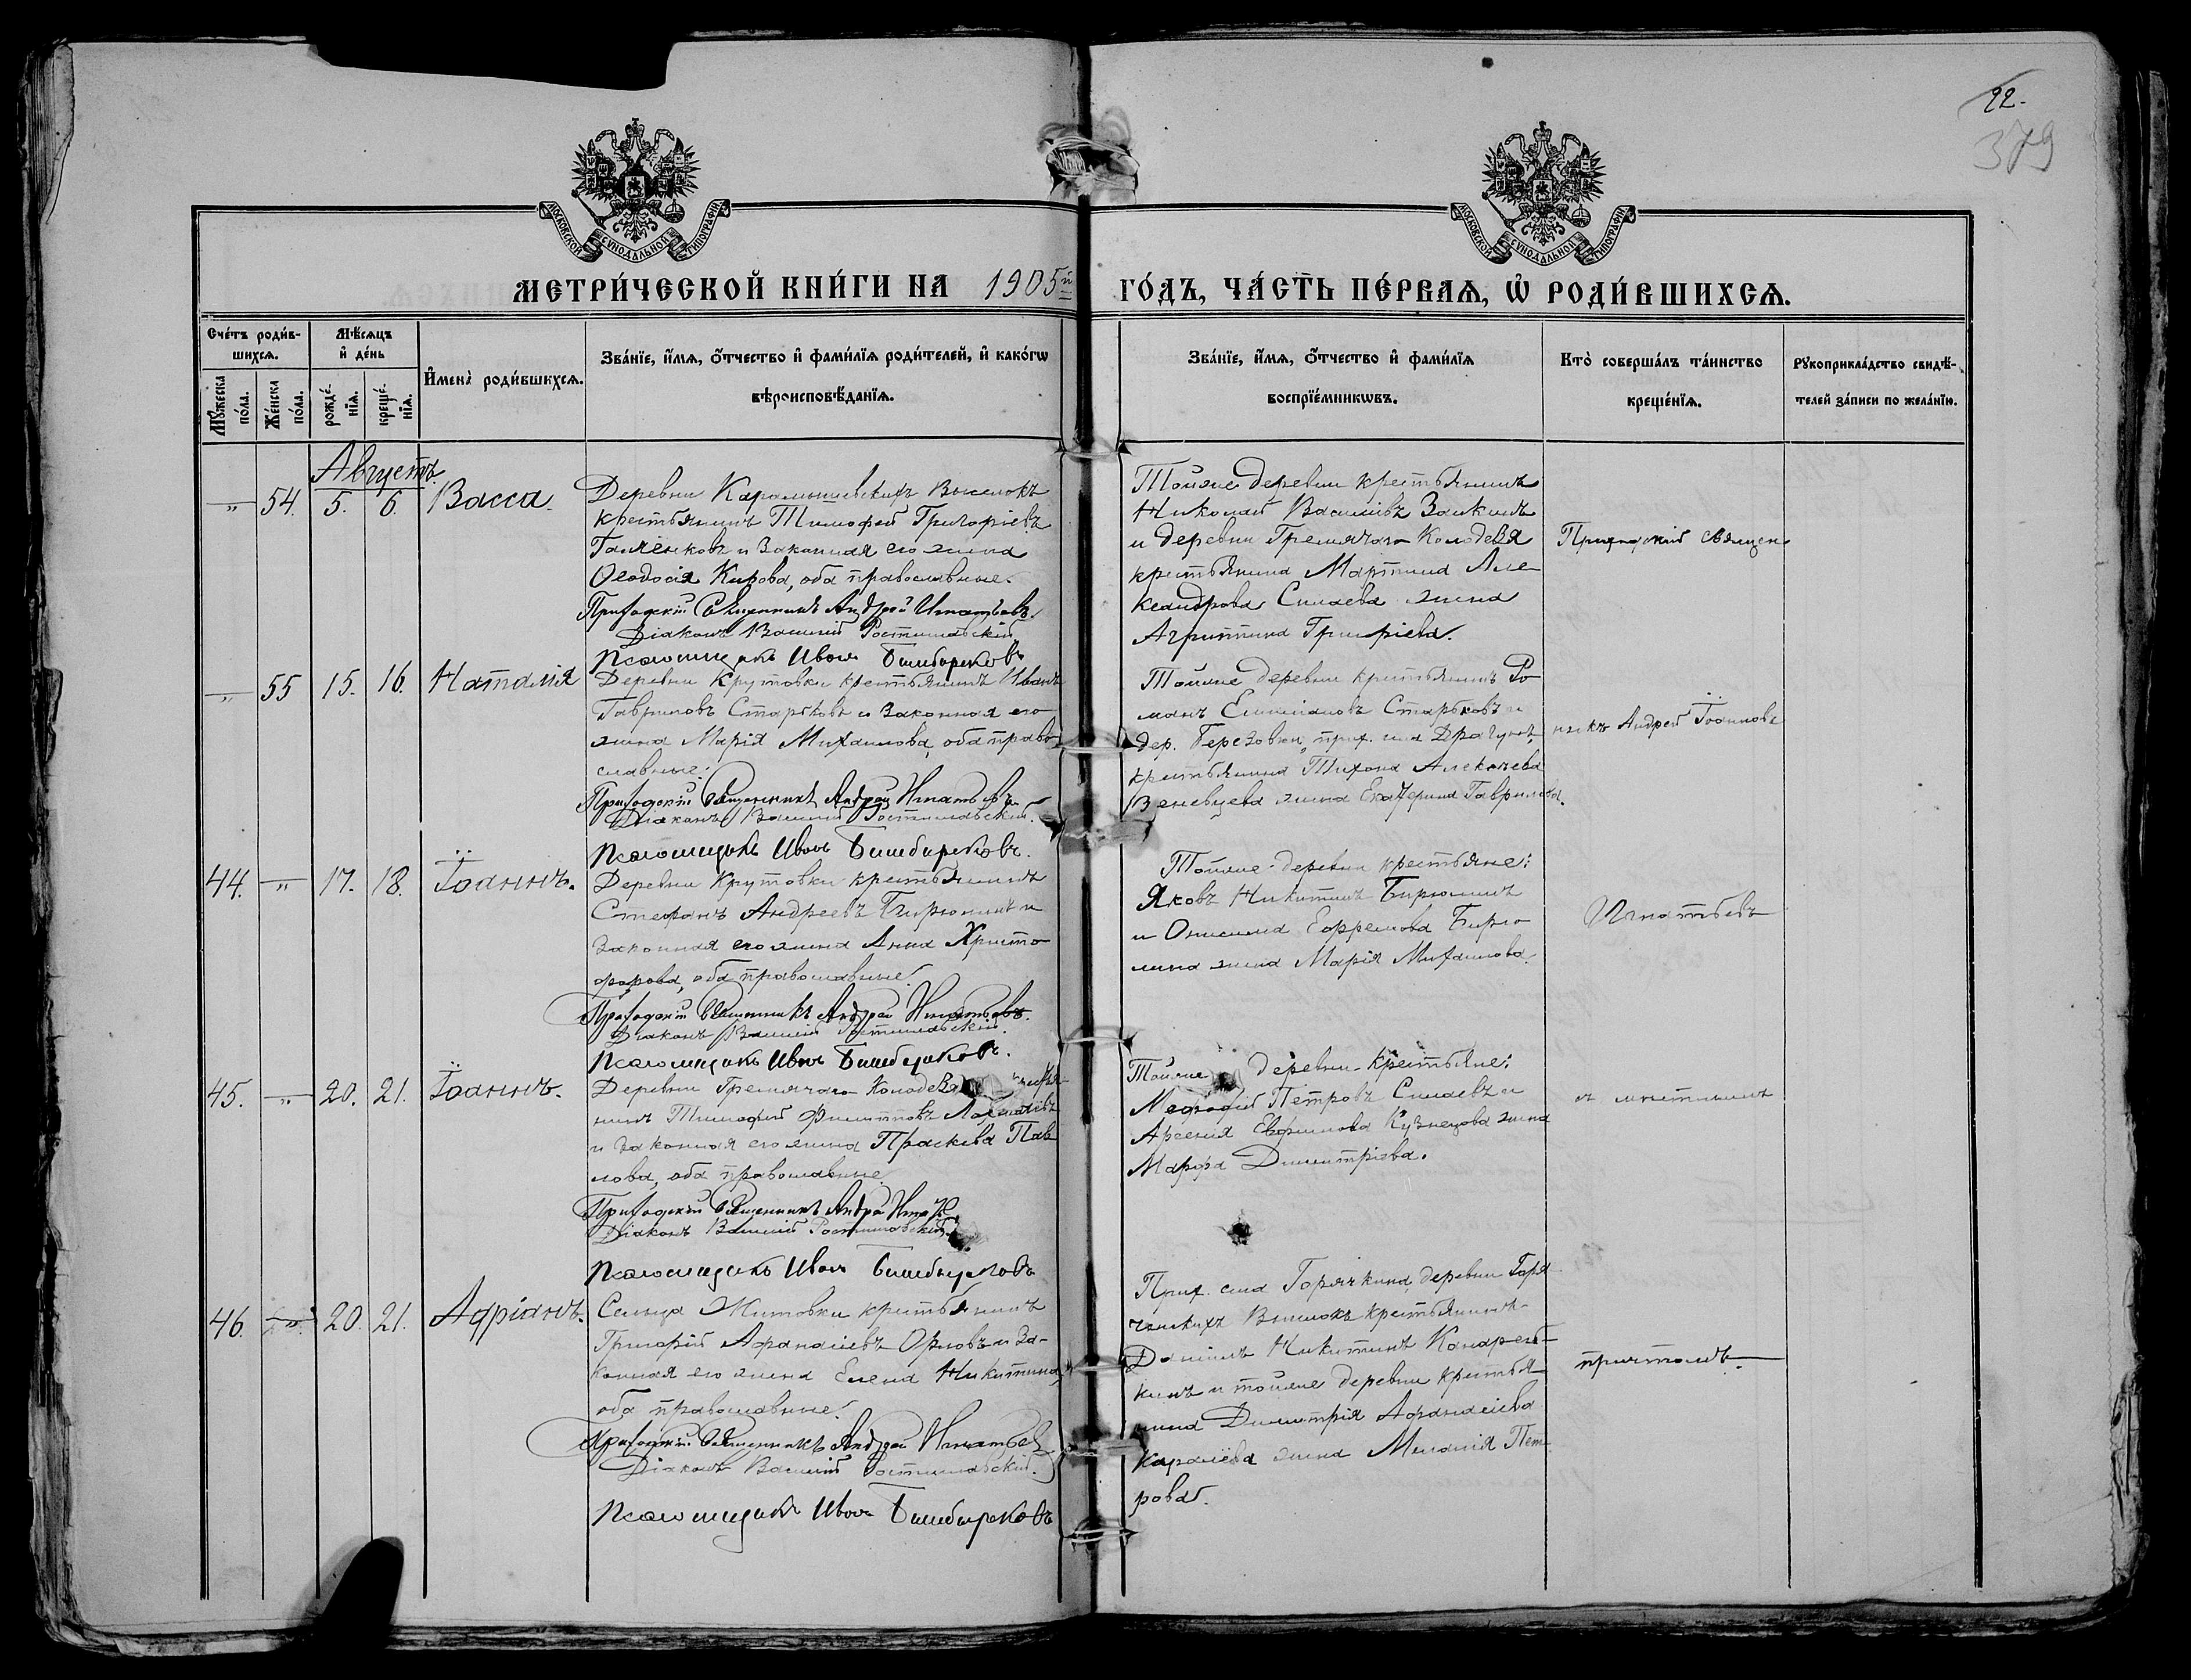 22.
379
МОСКОВСКОЙ СѴНОДАЛЬНОЙ ТИПОГРАФІИ.
МОСКОВСКОЙ СѴНОДАЛЬНОЙ ТИПОГРАФІИ.
МЕТРИ́ЧЕСКОЙ КНИ́ГИ НА 1905й
ГО́ДЪ, ЧА́СТЬ ПЕ́РВАѦ, Ѡ҆ РОДИ́ВШИХСѦ.
Сче́тъ роди́в-
шихсѧ.
Мѣ́сѧцъ
и҆ де́нь
Мꙋ́жеска
по́ла.
Же́нска
по́ла.
рожде́-
нїѧ.
креще́-
нїѧ.
И҆мена̀ роди́вшихсѧ.
Зва́нїе, и҆́мѧ, ѻ҆́тчество и҆ фами́лїѧ роди́телей, и҆ како́гѡ
вѣроисповѣ́данїѧ.
Зва́нїе, и҆́мѧ, ѻ҆́тчество и҆ фами́лїѧ
воспрїе́мникѡвъ.
Кто̀ соверша́лъ та́инство
креще́нїѧ.
Рꙋкоприкла́дство свидѣ́-
телей за́писи по жела́нїю.
Августъ.
— „ 54. 5. 6. Васса.
Деревни Карамышевскихъ Выселокъ
крестьянинъ Тимофей Григорьевъ
и законная его жена
Ѳеодосія Кирова, оба православные.
Приходскій Священникъ Андрей Игнатьевъ.
Діаконъ Василій Ростиславскій
Псаломщикъ Иванъ
Тойже деревни крестьянинъ
Николай Васильевъ Заикинъ
и деревни Гремячаго Колодезя
крестьянина Мартина Але-
ксандрова Силаева жена
Агриппина Григорьева.
Приходскій священ-
— „ 55 15. 16. Наталія
Деревни Крутовки крестьянинъ Иванъ
Гавриловъ Старковъ и законная его
жена Марія Михаилова, оба право-
славные.
Приходскій Священникъ Андрей Игнатьевъ
Діаконъ Василій Ростиславскій.
Псаломщикъ Иванъ
Тойже деревни крестьянинъ Ро-
манъ Старковъ и
дер. Березовки, прих. села
крестьянина Тихона Алексеева
жена Екатерина Гаврилова.
никъ Андрей Іоанновъ
44. — „ 17. 18. Іоаннъ.
Деревни Крутовки крестьянинъ
Стефанъ Андреевъ Бирюлинъ и
законная его жена Анна Христо-
форова, оба православные.
Приходскій Священникъ Андрей Игнатьевъ.
Діаконъ Василій Ростиславскій.
Псаломщикъ Иванъ
Тойже деревни крестьяне:
Яковъ Никитинъ Бирюлинъ
и Онисима Ефремова Бирю-
лина жена Марія Михаилова.
Игнатьевъ
45. — „ 20. 21. Іоаннъ.
Деревни Гремячаго Колодезя
нинъ Тимофей Филипповъ
и законная его жена Праскева Пав-
лова, оба православные.
Приходскій Священникъ Андрей
Діаконъ Василій Ростиславскій.
Псаломщикъ Иванъ
Тойже деревни крестьяне:
Меѳодій Петровъ Силаевъ и
Арсенія Кузнецова жена
Марфа Димитріева.
съ мѣстнымъ
46. — „ 20. 21. Адріанъ.
Сельца Житовки крестьянинъ
Григорій Афанасіевъ Орловъ и за-
конная его жена Елена Никитина,
оба православные.
Приходскій Священникъ Андрей Игнатьевъ
Діаконъ Василій Ростиславскій.
Псаломщикъ Иванъ
Прих. села Горячкина, деревни Горя-
чкинскихъ Выселокъ крестьянинъ
Даніилъ Никитинъ
кинъ и тойже деревни крестья-
нина Димитрія Афанасіева
жена Меланія Пет-
рова.
причтомъ.